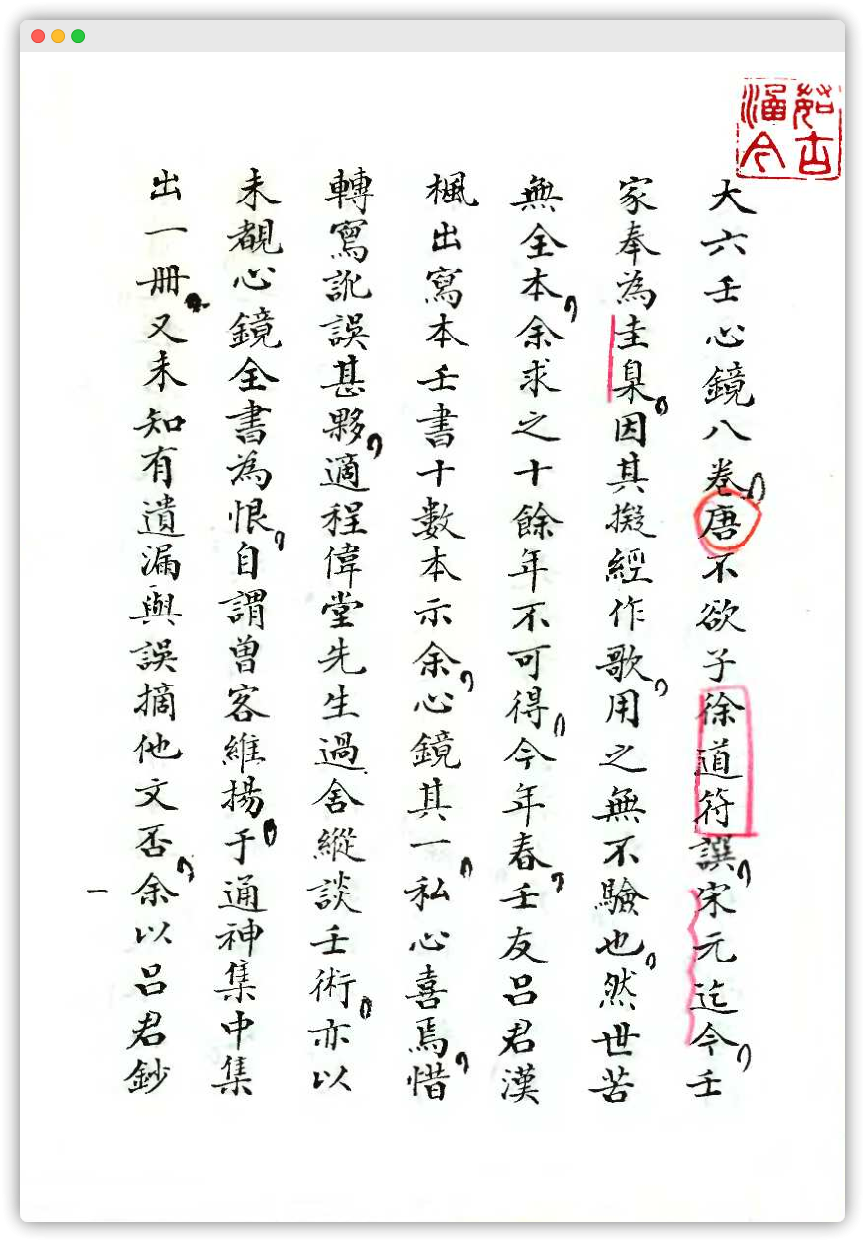 茹古涵今
大六壬心鏡八卷唐不欲子徐道符譔宋元迄今壬
家奉為圭臬因其擬經作歌用之無不驗也然世苦
無全本余求之十餘年不可得今年春壬友吕君漢
楓出寫本壬書十數本示余心鏡其一私心喜焉惜
轉寫訛誤甚夥適程偉堂先生過舍縱談壬術亦以
未覩心鏡全書為恨自謂曾客維揚于通神集中集
出一册又未知有遺漏與誤摘他文否余以吕君鈔
一